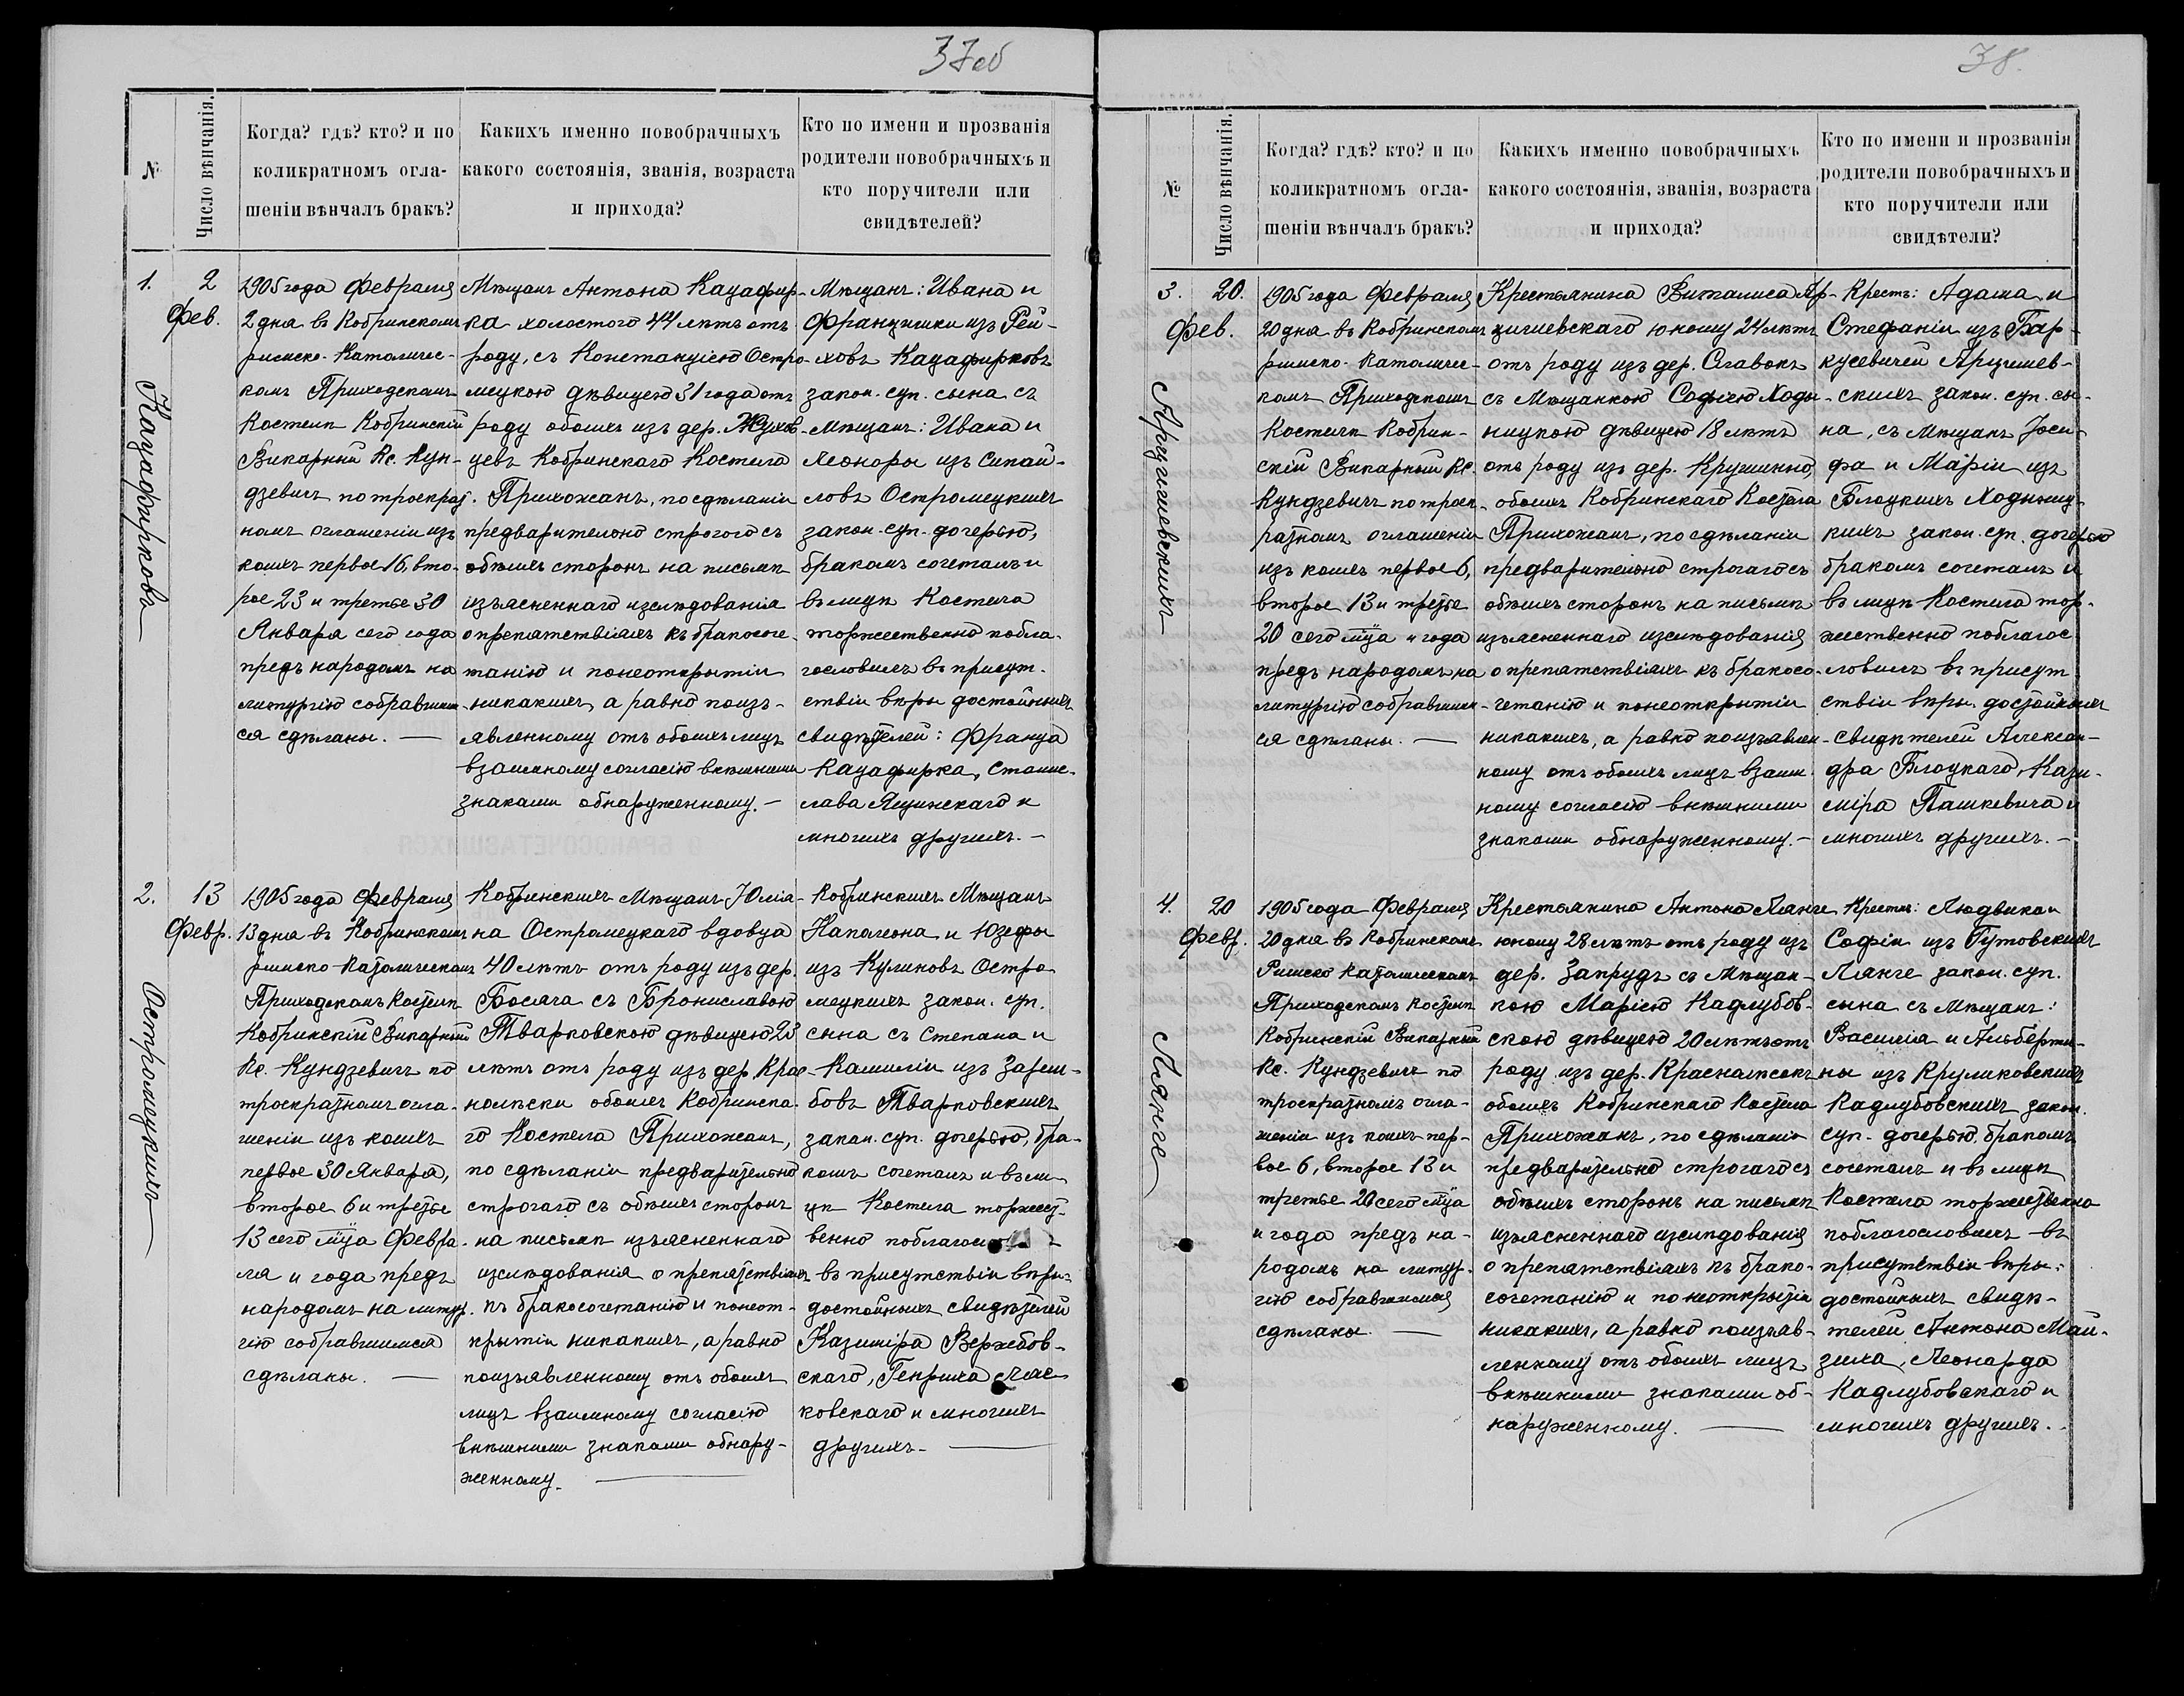 37об
№
Число вѣнчанія.
Когда? гдѣ? кто? и по
коликратномъ огла-
шеніи вѣнчалъ бракъ?
Какихъ именно новобрачныхъ
какого состоянія, званія, возраста
и прихода?
Кто по имени и прозванія
родители новобрачныхъ и
кто поручители или
свидѣтелей?
1.
2
Фев.
Кацафирковъ
1905 года Февраля
2 дня въ Кобринскомъ
римско-Католичес-
комъ Приходскомъ
Костелѣ Кобринскій
Викарный Кс. Кун-
дзевичъ по троекрат-
номъ оглашеніи изъ
коихъ первое 16, вто-
рое 23 и третье 30
Января сего года
предъ народомъ на
литургію собравшим-
ся сдѣланы. —
Мѣщанъ Антона Кацафир-
ка холостого 44 лѣтъ отъ
роду, съ Констанціею Остро-
мецкою дѣвицею 31 года отъ
роду обоихъ изъ дер. Жухов-
цевъ Кобринскаго Костела
Прихожанъ, по сдѣланіи
предварительно строгого съ
обѣихъ сторонъ на письмѣ
изъясненнаго изслѣдованія
о препятствіяхъ къ бракосоче-
танію и понеоткрытіи
никакихъ, а равно поизъ-
явленному отъ обоихъ лицъ
взаимному согласію внѣшними
знаками обнаруженному. —
Мѣщанъ: Ивана и
Францишки изъ Рей-
ховъ Кацафирковъ
закон. суп. сына съ
Мѣщанъ: Ивана и
Леоноры изъ Сипай-
ловъ Остромецкихъ
закон. суп. дочерью,
бракомъ сочеталъ и
въ лицѣ Костела
торжественно побла-
гословилъ въ присут-
ствіи вѣры достойныхъ
свидѣтелей: Франца
Кацафирка, Станис-
лава Ящинскаго и
многихъ другихъ. —
2.
13
Февр.
Остромецкихъ
1905 года Февраля
13 дня въ Кобринскомъ
римско-Католическомъ
Приходскомъ Костелѣ
Кобринскій Викарный
Кс. Кундзевичъ по
троекратномъ огла-
шеніи изъ коихъ
первое 30 Января,
второе 6 и третье
13 сего м-ца Февра-
ля и года предъ
народомъ на литур-
гію собравшимся
сдѣланы. —
Кобринскихъ Мѣщанъ Юліа-
на Остромецкаго вдовца
40 лѣтъ отъ роду изъ дер.
Босяча съ Брониславою
Тварковскою дѣвицею 23
лѣтъ отъ роду изъ дер. Крас-
нолѣски обоихъ Кобринска-
го Костела Прихожанъ,
по сдѣланіи предварительно
строгаго съ обѣихъ сторонъ
на письмѣ изъясненнаго
изслѣдованія о препятствіяхъ
къ бракосочетанію и понеот-
крытіи никакихъ, а равно
поизъявленному отъ обоихъ
лицъ взаимному согласію
внѣшними знаками обнару-
женному. —
Кобринскихъ Мѣщанъ
Наполеона и Юзефы
изъ Кулиновъ Остро
мецкихъ закон. суп.
сына съ Степана и
Камиліи изъ Зарем-
бовъ Тварковскихъ
закон. суп. дочерью, бра-
комъ сочеталъ и въ ли-
цѣ Костела торжест-
венно поблагосл
въ присутствіи вѣры
достойныхъ свидѣтелей
Казиміра Вержбов-
скаго, Генриха Мас-
ковскаго и многихъ
другихъ. —
38.
№
Число вѣнчанія.
Когда? гдѣ? кто? и по
коликратномъ огла-
шеніи вѣнчалъ бракъ?
Какихъ именно новобрачныхъ
какого состоянія, званія, возраста
и прихода?
Кто по имени и прозванія
родители новобрачныхъ и
кто поручители или
свидѣтели?
3.
20.
Фев.
Арцишевскихъ
1905 года Февраля
20 дня въ Кобринскомъ
римско-Католичес-
комъ Приходскомъ
Костелѣ Кобрин-
скій Викарный Кс.
Кундзевичъ по троек-
ратномъ оглашеніи
изъ коихъ первое 6,
второе 13 и третье
20 сего м-ца и года
предъ народомъ на
литургію собравшим-
ся сдѣланы. —
Крестьянина Виталиса Ар-
цишевскаго юношу 24 лѣтъ
отъ роду изъ дер. Славокъ
съ Мѣщанкою Софіею Ходы-
ницкою дѣвицею 18 лѣтъ
отъ роду изъ дер. Крушино,
обоихъ Кобринскаго Костела
Прихожанъ, по сдѣланіи
предварительно строгаго съ
обѣихъ сторонъ на письмѣ
изъясненнаго изслѣдованія
о препятствіяхъ къ бракосо-
четанію и понеоткрытіи
никакихъ, а равно поизъявлен-
ному отъ обоихъ лицъ взаим-
ному согласію внѣшними
знаками обнаруженному. —
Крестъ: Адама и
Стефаніи изъ Бар-
кусевичей Арцишев-
скихъ закон. суп. сы-
на, съ Мѣщанъ Іоси-
фа и Маріи изъ
Блоцкихъ Ходыниц-
кихъ закон. суп. дочерью
бракомъ сочеталъ и
въ лицѣ Костела тор-
жественно поблагос-
ловилъ въ присут
ствіи вѣры достойныхъ
свидѣтелей Алексан-
дра Блоцкаго, Кази-
міра Пашкевича и
многихъ другихъ. —
4.
20
Февр.
Лянге
1905 года Февраля
20 дня въ Кобринскомъ
Римско Католическомъ
Приходскомъ Костелѣ
Кобринскій Викарный
Кс. Кундзевичъ по
троекратномъ огла-
шеніи изъ коихъ пер-
вое 6, второе 13 и
третье 20 сего м-ца
и года предъ на-
родомъ на литур-
гію собравшимся
сдѣланы. —
Крестьянина Антона Лянге
юношу 28 лѣтъ отъ роду изъ
дер. Запрудъ съ Мѣщан-
кою Маріею Кадлубов-
скою дѣвицею 20 лѣтъ отъ
роду изъ дер. Краснолѣсокъ
обоихъ Кобринскаго Костела
Прихожанъ, по сдѣланіи
предварительно строгаго съ
обѣихъ сторонъ на письмѣ
изъясненнаго изслѣдованія
о препятствіяхъ къ брако-
сочетанію и по неоткрытіи
никакихъ, а равно поизъяв-
ленному отъ обоихъ лицъ
внѣшними знаками об-
наруженному. —
Крестъ: Людвика и
Софіи изъ Гутовскихъ
Лянге закон. суп.
сына съ Мѣщанъ:
Василія и Альберти-
ны изъ Круликовскихъ
Кадлубовскихъ закон.
суп. дочерью, бракомъ
сочеталъ и въ лицѣ
Костела торжественно
поблагословилъ въ
присутствіи вѣры
достойныхъ свидѣ-
телей Антона Май-
зиха, Леонарда
Кадлубовскаго и
многихъ другихъ.